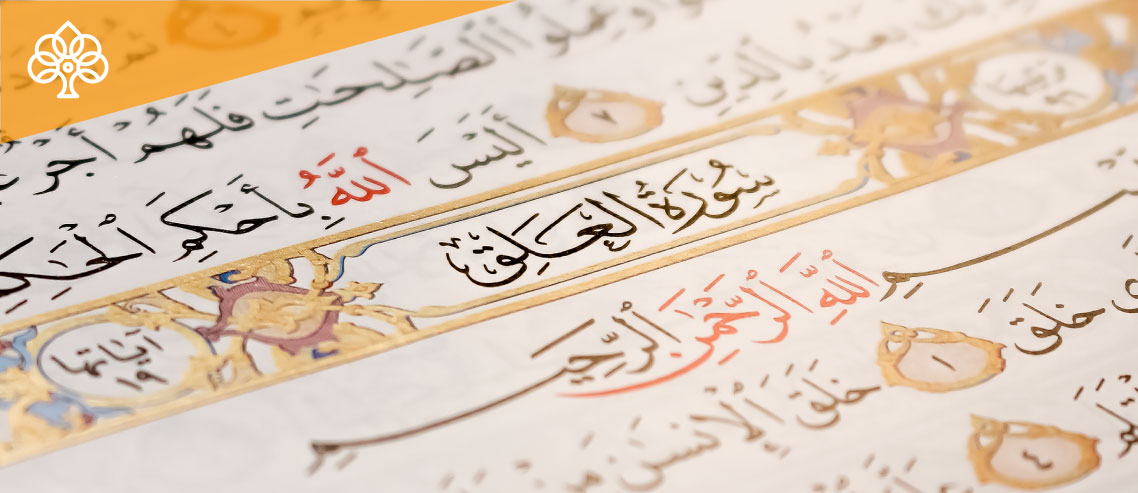 وَعَمِلُوا ٱلصَّٰلِحَٰتِ فَلَهُمْ أَجْرٌ
بَعْدُ بِٱلدِّينِ ٧ أَلَيْسَ ٱللَّهُ بِأَحْكَمِ
سُورَةُ العَلَقِ
آيَاتُهَا ١٩
ٱللَّهِ ٱلرَّحْمَٰنِ ٱلرَّحِيمِ
خَلَقَ ١ خَلَقَ ٱلْإِنسَٰنَ مِنْ
٤